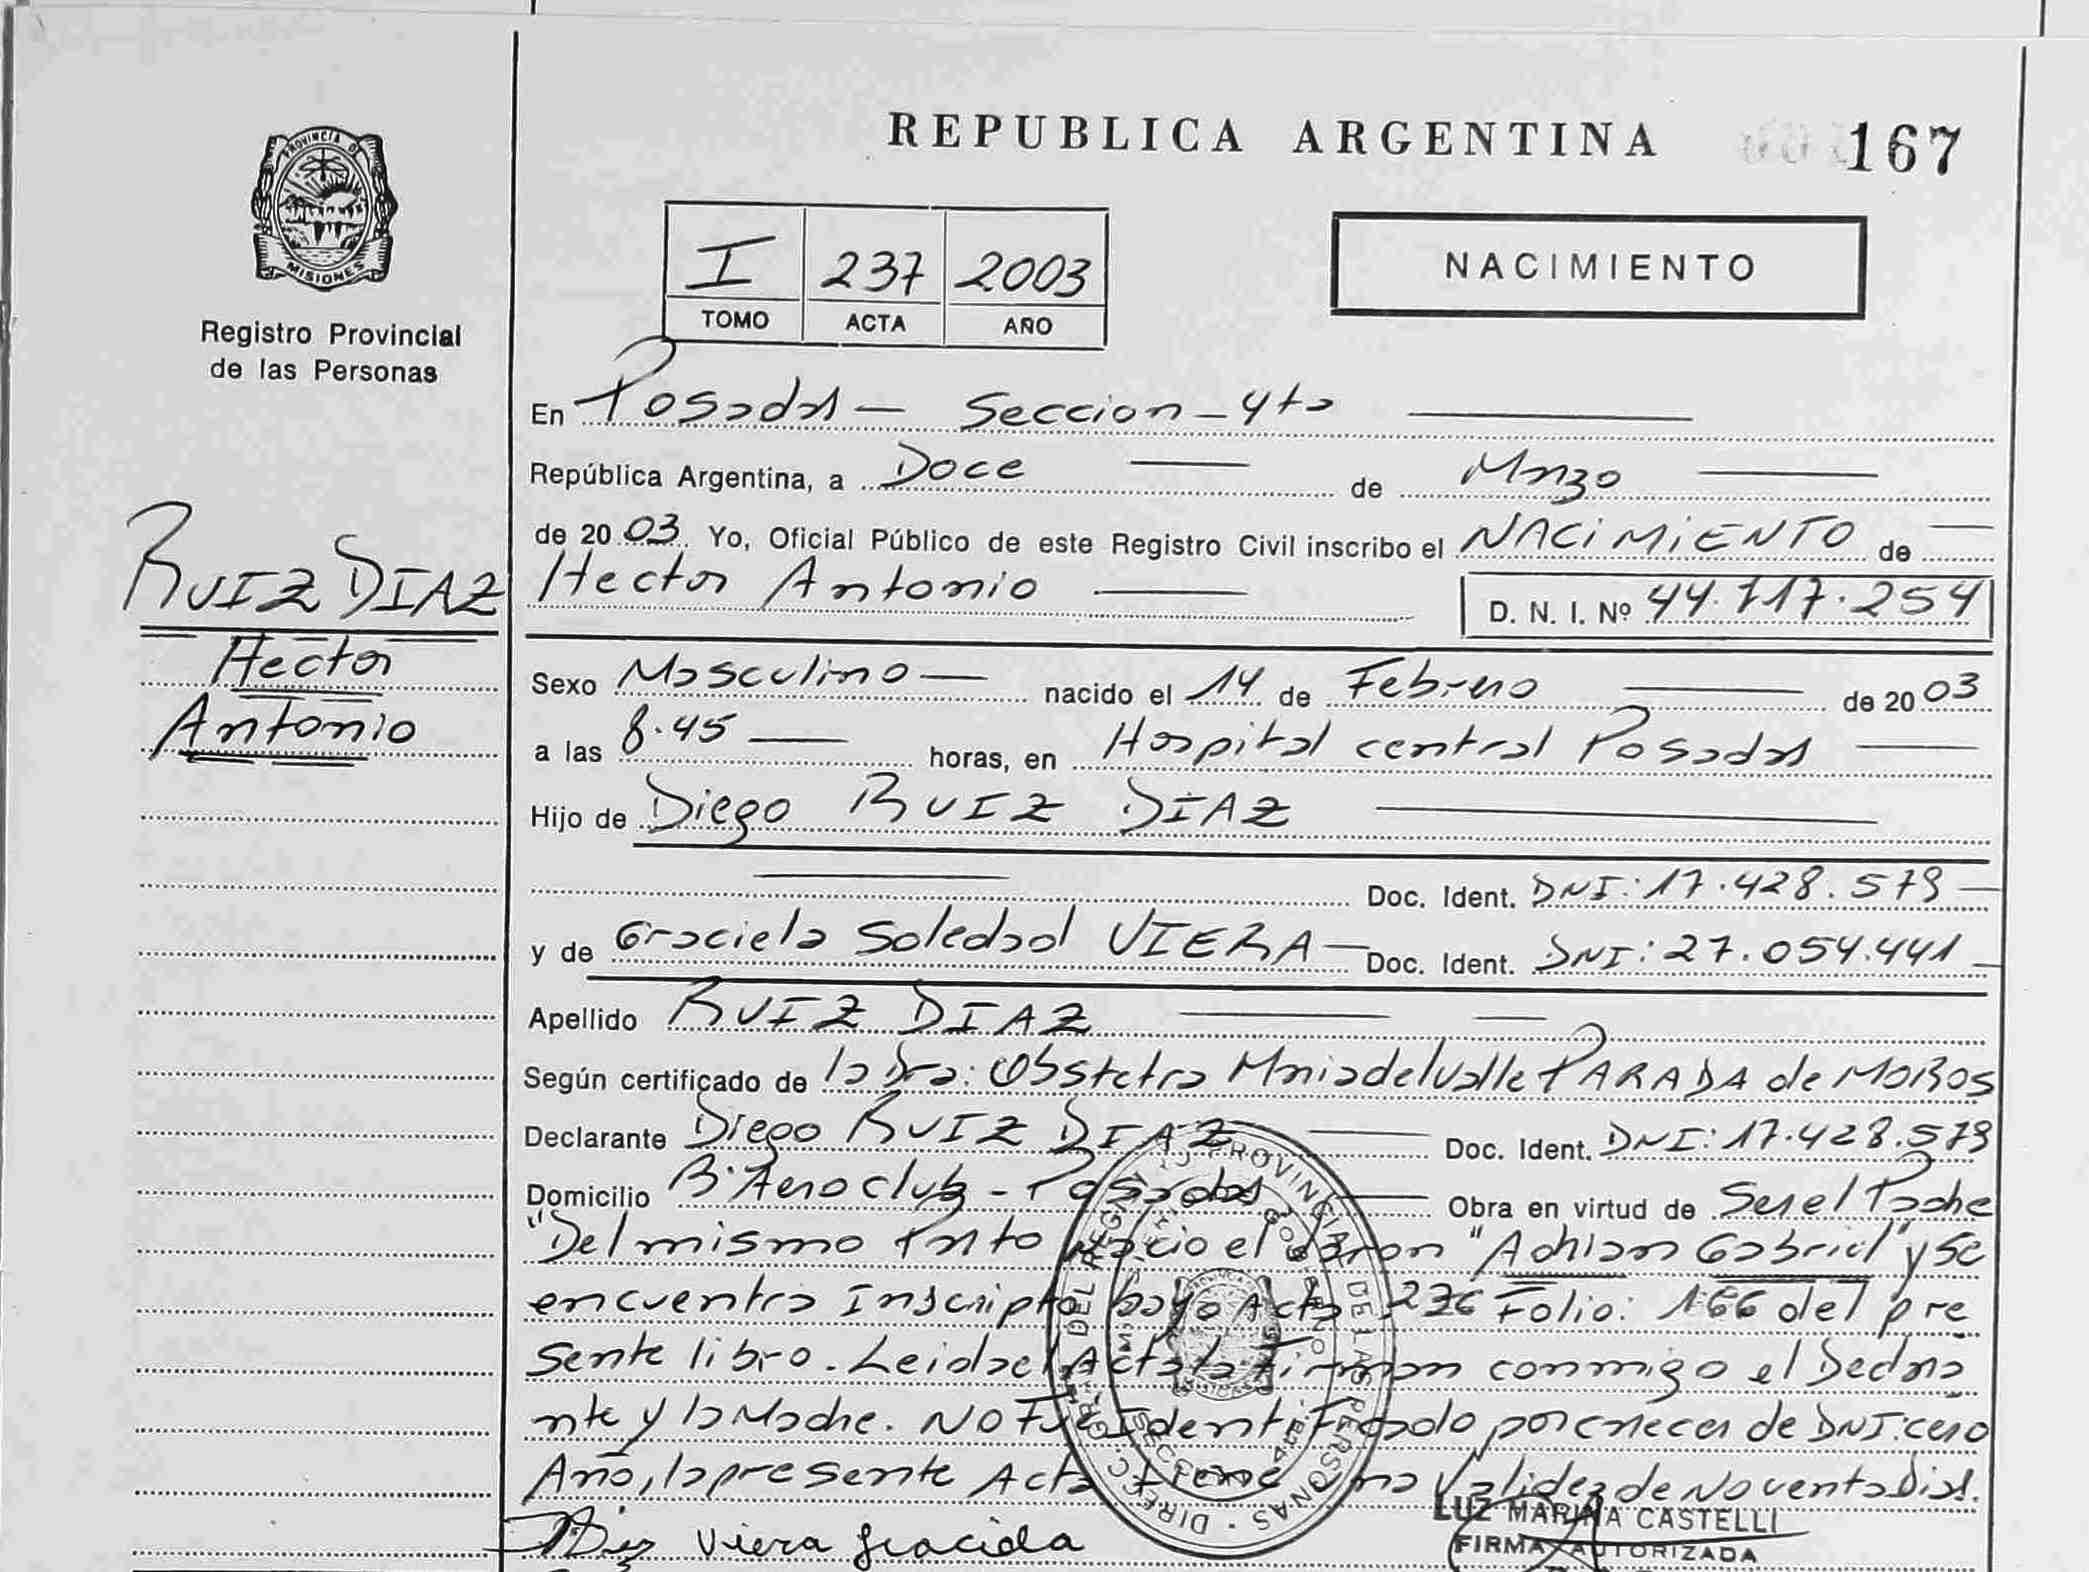 REPUBLICA ARGENTINA
167
PROVINCIA DE
MISIONES
Registro Provincial
de las Personas
I 237 2003
TOMO ACTA AÑO
NACIMIENTO
En Posadas — Seccion - 4ta
República Argentina, a Doce de Marzo
de 2003. Yo, Oficial Público de este Registro Civil inscribo el NACIMIENTO de
Hector Antonio D. N. I. Nº 44.717.254
RUIZ DIAZ
Hector
Antonio
Sexo Masculino nacido el 14 de Febrero de 2003
a las 8.45 horas, en Hospital central Posadas
Hijo de Diego RUIZ DIAZ
Doc. Ident. DNI: 17.428.579
y de Graciela Soledad VIERA Doc. Ident. DNI: 27.054.441
Apellido RUIZ DIAZ
Según certificado de la Dra: Obstetra Maria del Valle PARADA de MOROS
Declarante Diego RUIZ DIAZ Doc. Ident. DNI: 17.428.579
Domicilio Bº Aero club - Posadas Obra en virtud de Ser el Padre
"Del mismo Parto Nacio el Varon "Adrian Gabriel" y se
encuentra Inscripto bajo Acta 236 Folio: 166 del pre
sente libro. Leida el Acta la Firman conmigo el Declara
nte y la Madre. NO Fue Identificado por carecer de DNI. cero
Año, la presente Acta tiene una Validez de Noventa Dias.
Viera Graciela
LUZ MARINA CASTELLI
FIRMA AUTORIZADA